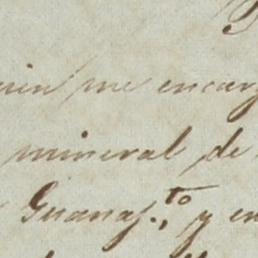 me encarg
mineral de
Guanaj.to, y en